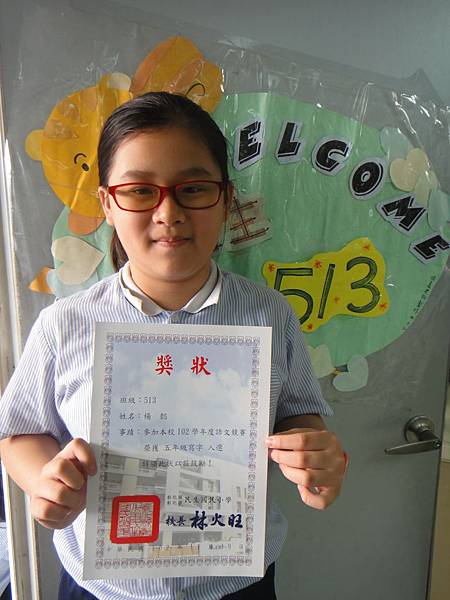 WELCOME
513
獎狀
班級：513
姓名：楊
事蹟：參加本校102學年度語文競賽
榮獲 五年級寫字 入選
特頒此狀以茲鼓勵！
民生國民小學
校長 林火旺